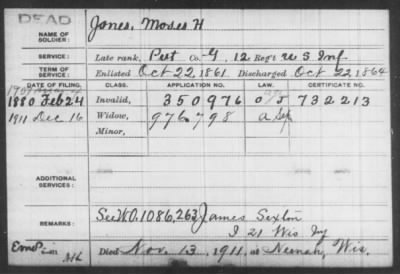 DEAD
NAME OF SOLDIER: Jones, Moses H
SERVICE: Late rank, Pvt Co. G, 12 Regt U S Inf
TERM OF SERVICE: Enlisted Oct 22, 1861 Discharged Oct 22, 1864
DATE OF FILING. CLASS. APPLICATION NO. LAW. CERTIFICATE NO.
1880 Feb 24 Invalid, 350976 732213
1911 Dec 16 Widow, 976798
Minor,
ADDITIONAL SERVICES:
REMARKS: See WO. 1086,263 James Sexton
I 21 Wis Inf
Died Nov. 13, 1911, at Neenah, Wis.